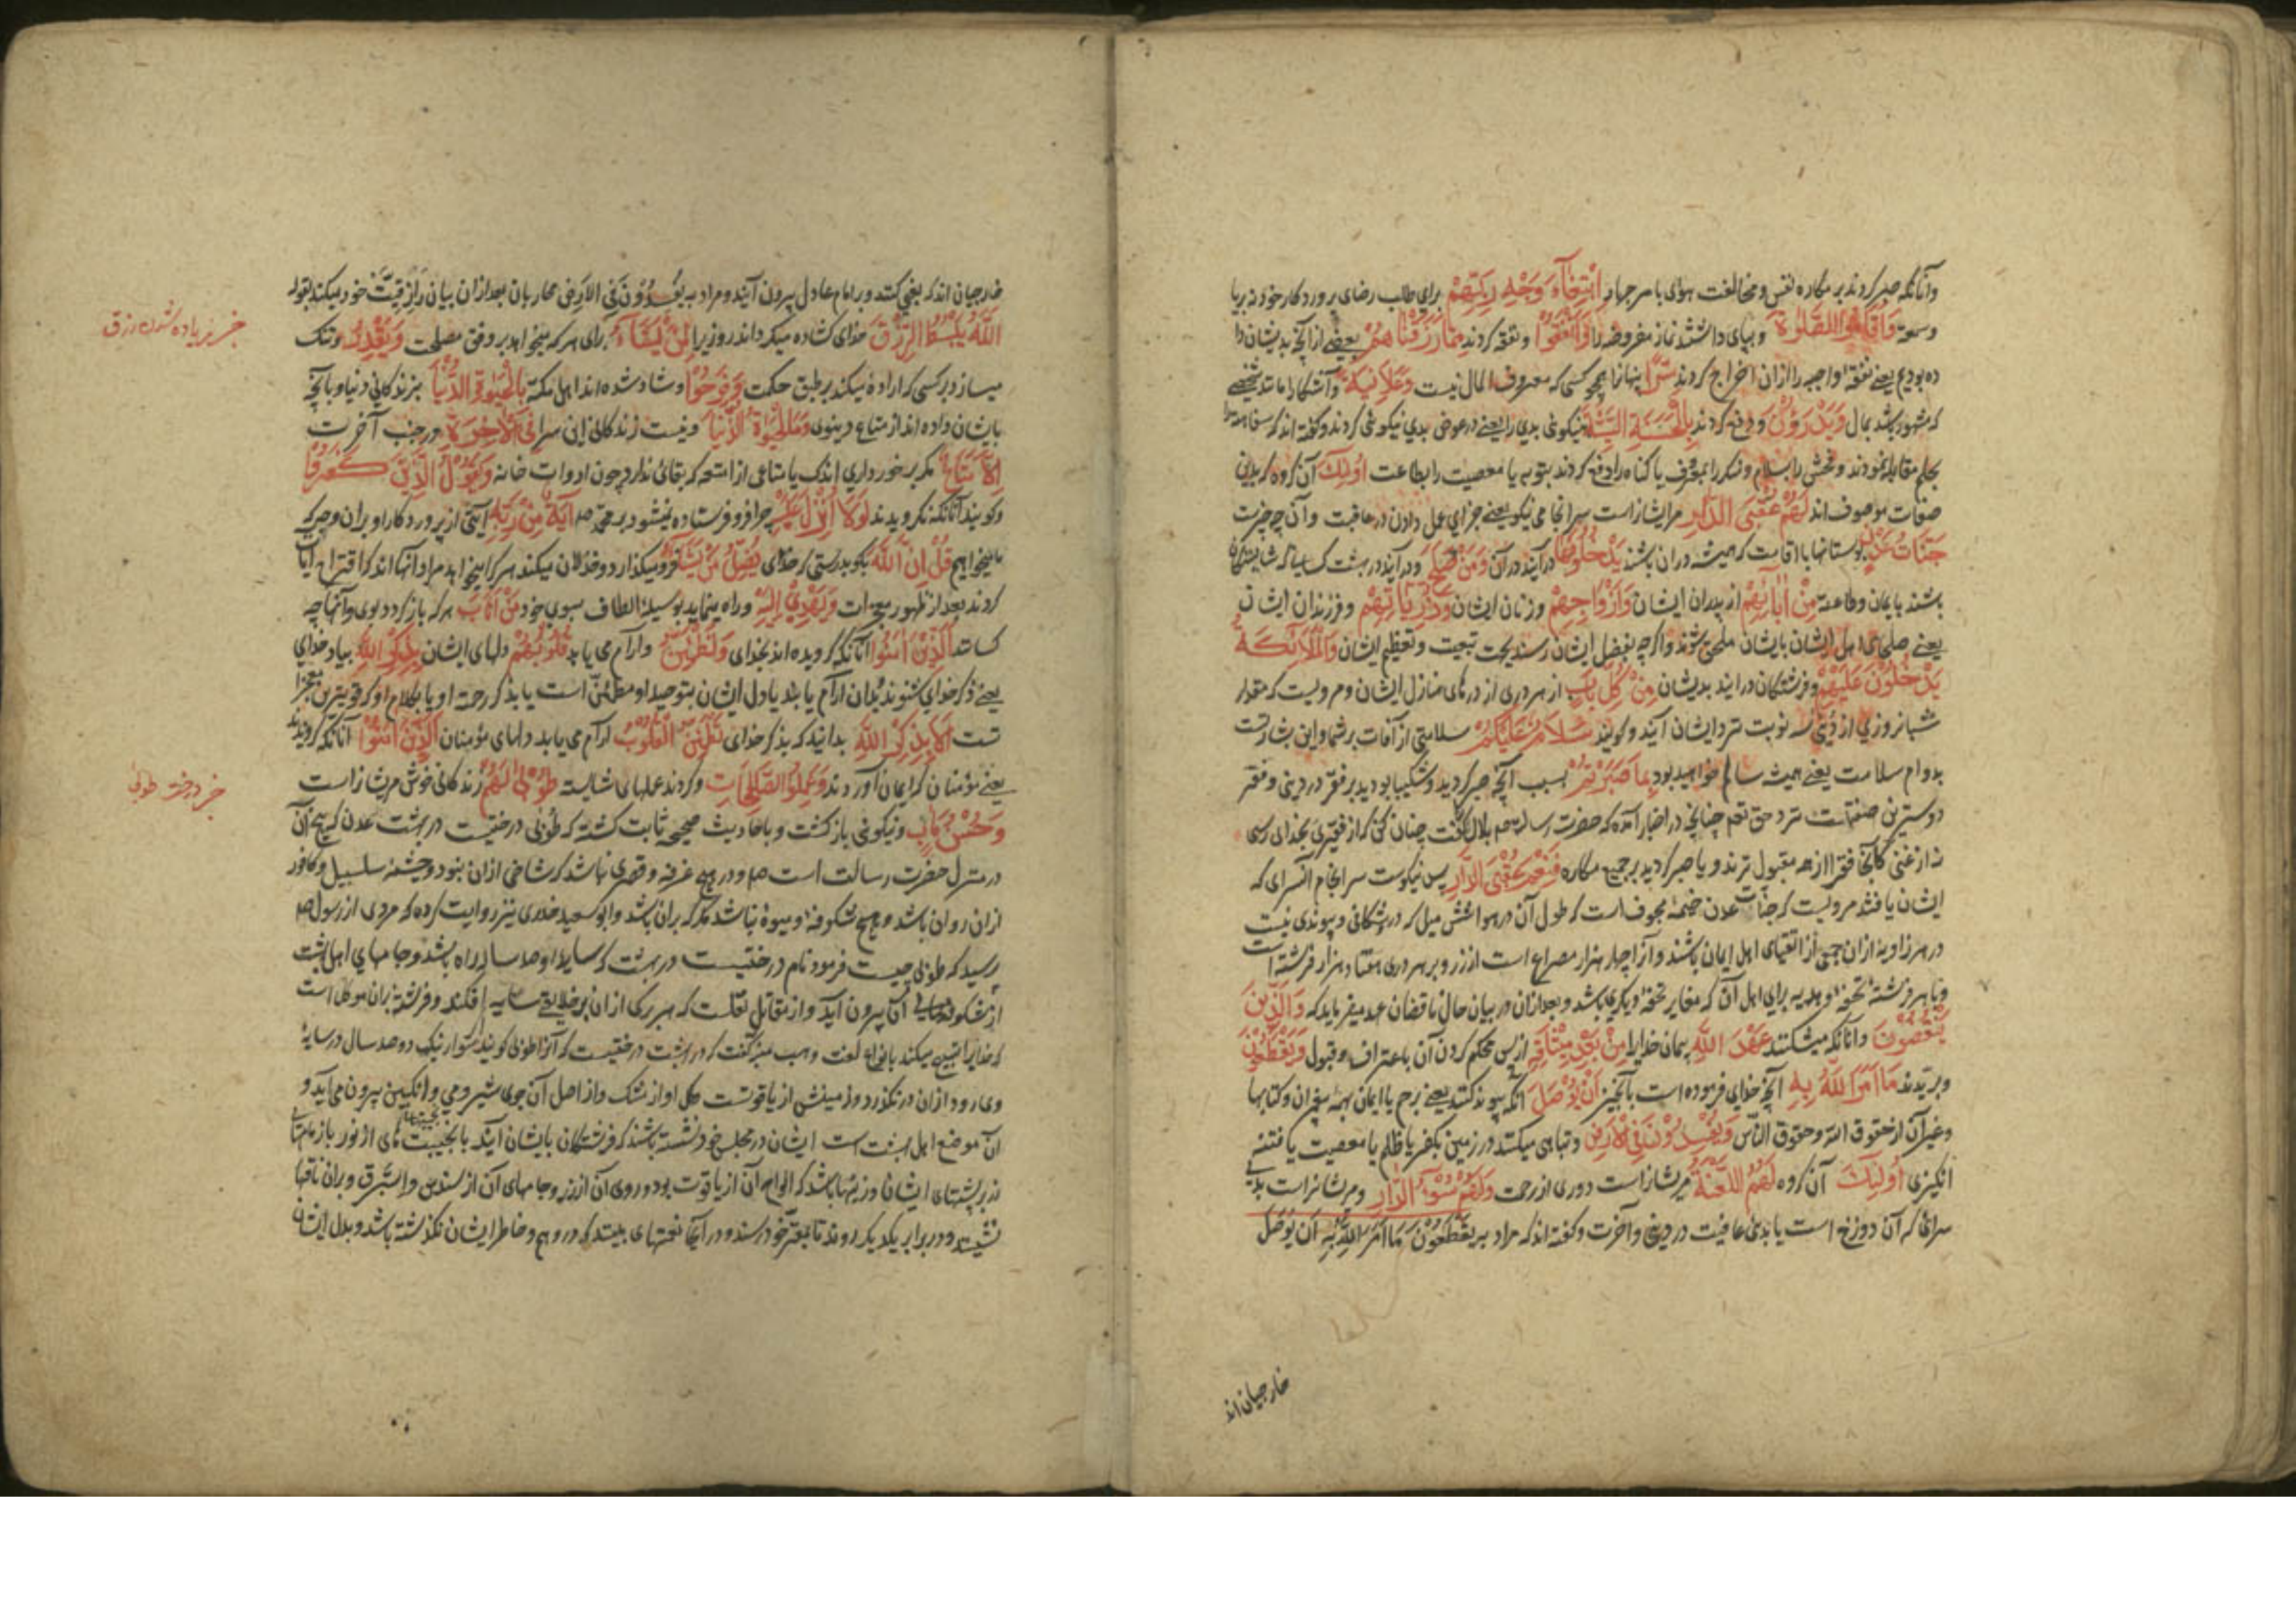 وآنانکه صبر کردند بر مکاره نفس و مخالفت هوای یا سر جهاد ابْتِغَاءَ وَجْهِ رَبِّهِمْ برای طلب رضای پروردکار خود نه بریا
وسمعه وَاَقَامُوا الصَّلٰوةَ وبپای داشتند نماز مفروضه را وَاَنْفَقُوا ونفقه کردند مِمَّا رَزَقْنَاهُمْ بعضی از آنچه بدیشان دا
ده بودیم یعنے نفقه واجبه را از ان اخراج کردند سِرًّا پنهان از همچو کسی که معروف المال نیست وَعَلَانِیَةً وآشکارا مانند شخصے
که مشهور باشد بمال وَیَدْرَؤُنَ ودفع کردند بِالْحَسَنَةِ السَّیِّئَةَ بنیکوئی بدی را یعنے در عوض بدی نیکوئی کردند وکفته اند که سفاهت را
بحلم مقابله نمودند وفحش را بسلام ومنکر را بمعروف یا کناه را دفع کردند بتوبه یا معصیت را بطاعت اُولٰئِکَ آن کروه که بدین
صفات موصوف اند لَهُمْ عُقْبَی الدَّارِ مر ایشانراست سرانجامی نیکو یعنے جزای عمل دادن در عاقبت وآن چه چیزست
جَنَّاتُ عَدْنٍ بوستانها با اقامت که همیشه دران باشند یَدْخُلُونَهَا درآیند در آن وَمَنْ صَلَحَ ودرآید در بهشت کسانیکه شایستکان
باشند بایمان وطاعت مِنْ اٰبَائِهِمْ از پدران ایشان وَاَزْوَاجِهِمْ وزنان ایشان وَذُرِّیَّاتِهِمْ وفرزندان ایشان
یعنے صلحای اهل ایشان بایشان ملحق شوند واکرچه بفضل ایشان نرسند بجهت تبعیت وتعظیم ایشان وَالْمَلَائِکَةُ
یَدْخُلُوْنَ عَلَیْهِمْ وفرشتکان درایند بدیشان مِنْ کُلِّ بَابٍ از هر دری از درهای منازل ایشان ومرویست که مقدار
شبانروزی از دنیی سه نوبت نزد ایشان آیند وکویند سَلَامٌ عَلَیْکُمْ سلامتی از آفات بر شما واین بشارتست
بدوام سلامت یعنے همیشه سالم خواهید بود بِمَا صَبَرْتُمْ بسبب آنچه صبر کردید وشکیبا بودید بر فقر در دینی وفقر
دوسترین صفتهاست نزد حق تعم چنانچه در اخبار آمده که حضرت رسالت صم بلال را کفت چنان کن که از فقیری بخدای رسی
نه از غنی کانجا فقرا از همه مقبول ترند ویا صبر کردید بر جمیع مکاره فَنِعْمَ عُقْبَی الدَّارِ پس نیکوست سرانجام آنسرای که
ایشان یافتند مرویست که جنات عدن خیمۀ مجوف است که طول آن در هوا شش میل که در وشکافی وپیوندی نیست
در هر زاویۀ از ان جمعی از اتقیای اهل ایمان باشند وآنرا چهار هزار مصراع است از زر وبر هر دری هفتاد هزار فرشته است
وبا هر فرشته تحفه وهدیه برای اهل آن که مغایر تحفۀ دیکری باشد وبعد ازان در بیان حال ناقضان عهد میفرماید که وَالَّذِیْنَ
یَنْقُضُوْنَ وآنانکه میشکنند عَهْدَ اللّٰهِ پیمان خدایرا مِنْ بَعْدِ مِیْثَاقِهِ از پس محکم کردن آن باعتراف وقبول وَیَقْطَعُوْنَ
وبریدند مَا اَمَرَ اللّٰهُ بِهِ آنچه خدای فرموده است بآنچیز اَنْ یُوْصَلَ آنکه پیوند کنند یعنے رحم یا ایمان بهمه پیغمبران وکتابها
وغیر آن از حقوق الله وحقوق الناس وَیُفْسِدُوْنَ فِی الْاَرْضِ وتباهی میکنند در زمین بکفر یا ظلم یا معصیت یا فتنه
انکیزی اُولٰئِکَ آن کروه لَهُمُ اللَّعْنَةُ مر ایشانراست دوری از رحمت وَلَهُمْ سُوْءُ الدَّارِ ومر ایشانراست بدی
سرائی که آن دوزخ است یا بدی عاقبت در دنیی وآخرت وکفته اند که مراد به یَقْطَعُوْنَ مَا اَمَرَ اللّٰهُ بِهِ اَنْ یُوْصَلَ
خارجیان اند
خارجیان اند که بغی کنند وبر امام عادل بیرون آیند ومراد به یُفْسِدُوْنَ فِی الْاَرْضِ محاربان بعد ازان بیان رازقیت خود میکند بقوله
اَللّٰهُ یَبْسُطُ الرِّزْقَ خدای کشاده میکرداند روزیرا لِمَنْ یَشَاءُ برای هر که میخواهد بر وفق مصلحت وَیَقْدِرُ وتنک
میسازد بر کسی که اراده میکند بر طبق حکمت وَفَرِحُوْا وشاد شده اند اهل مکه بِالْحَیٰوةِ الدُّنْیَا بزندکانی دنیا وبآنچه
بایشان داده اند از متاع دنیوی وَمَا الْحَیٰوةُ الدُّنْیَا ونیست زندکانی این سرا فِی الْاٰخِرَةِ در جنب آخرت
اِلَّا مَتَاعٌ مکر برخورداری اندک یا متاعی از امتعه که بقائی ندارد چون ادوات خانه وَیَقُوْلُ الَّذِیْنَ کَفَرُوْا
وکویند آنانکه نکرویدند لَوْلَا اُنْزِلَ عَلَیْهِ چرا فرو فرستاده نمیشود بر محمد صم اٰیَةٌ مِنْ رَبِّهِ آیتی از پروردکار او بران وجه که
ما میخواهیم قُلْ اِنَّ اللّٰهَ بکو بدرستی که خدای یُضِلُّ مَنْ یَشَاءُ فرو میکذارد وخذلان میکند هر که را میخواهد مراد آنها اند که اقتراح آیات
کردند بعد از ظهور معجزات وَیَهْدِیْ اِلَیْهِ وراه مینماید بوسیلۀ الطاف بسوی خود مَنْ اَنَابَ هر که باز کردد بوی وآنها چه
کسانند اَلَّذِیْنَ اٰمَنُوْا آنانکه کرویده اند بخدای وَتَطْمَئِنُّ وآرام می یابد قُلُوْبُهُمْ دلهای ایشان بِذِکْرِ اللّٰهِ بیاد خدای
یعنے ذکر خدای شنوند بدان آرام یابند یا دل ایشان بتوحید او مطمئن است یا بذکر رحمت او یا بکلام او که قویترین معجزا
تست اَلَا بِذِکْرِ اللّٰهِ بدانید که بذکر خدای تَطْمَئِنُّ الْقُلُوْبُ آرام می یابد دلهای مؤمنان اَلَّذِیْنَ اٰمَنُوْا آنانکه کرویدند
یعنے مؤمنان که ایمان آوردند وَعَمِلُوا الصَّالِحَاتِ وکردند عملهای شایسته طُوْبٰی لَهُمْ زندکانی خوش مر ایشانراست
وَحُسْنُ مَاٰبٍ ونیکوئی باز کشت وباحادیث صحیحه ثابت کشته که طوبی درختیست در بهشت عدن که بیخ آن
در منزل حضرت رسالت است صم ودر هیچ غرفه وقصری نباشد که شاخی ازان نبود وچشمۀ سلسبیل وکافور
ازان روان باشد وهیچ شکوفه ومیوۀ نباشد مکر که بران باشد وابو سعید خدری نیز روایت کرده که مردی از رسول صم
پرسید که طوبی چیست فرمود نام درختیست در بهشت که سایۀ او صد ساله راه باشد وجامهای اهل بهشت
از شکوفهای آن بیرون آید واز مقاتل نقلست که هر برکی ازان بر خلایقے سایه افکند وفرشته بران موکل است
که خدایرا تسبیح میکند بانواع لغت وهب منبه کفت که در بهشت درختیست که آنرا طوبی کویند سوار نیک دو صد سال در سایۀ
وی رود ازان در نکذرد وزمینش از یاقوتست وکل او از مشک واز اصل آن جوی شیر ومی وانکبین بیرون می آید و
آن موضع اهل بهشت است ایشان در مجلس خود نشسته باشند که فرشتکان بایشان آیند با نجیبت های از نور با زمامهای
زر بر پشتهای ایشان وزینها باشد که الواح آن از یاقوت بود وروی آن از زر وجامهای آن از سندس واستبرق وبران ناقها
نشینند ودر برابر یکدیکر روند تا بقصر خود رسند ودر آنجا نعمتهای بینند که در وهم وخاطر ایشان نکذشته باشد وبدل ایشان
خبر زیاده شدن رزق
خبر درخت طوبی